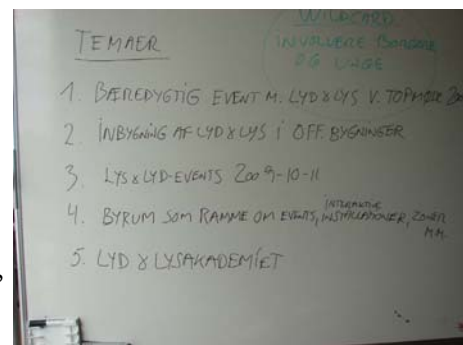 WILDCARD
INVOLVERE BORGERE
OG UNGE
TEMAER
1. BÆREDYGTIG EVENT M. LYD & LYS V. TOPMØDE
2. INBYGNING AF LYD & LYS I OFF. BYGNINGER
3. LYS & LYD-EVENTS 2009-10-11
4. BYRUM SOM RAMME OM EVENTS, INTERAKTIVE INSTALLATIONER, ZONER
MM.
5. LYD & LYSAKADEMIET